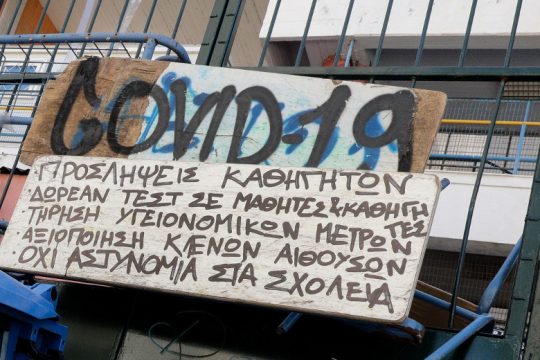 COVID-19
-ΠΡΟΣΛΗΨΕΙΣ ΚΑΘΗΓΗΤΩΝ
·ΔΩΡΕΑΝ ΤΕΣΤ ΣΕ ΜΑΘΗΤΕΣ & ΚΑΘΗΓΗΤΕΣ
·ΤΗΡΗΣΗ ΥΓΕΙΟΝΟΜΙΚΩΝ ΜΕΤΡΩΝ
·ΑΞΙΟΠΟΙΗΣΗ ΚΕΝΩΝ ΑΙΘΟΥΣΩΝ
ΟΧΙ ΑΣΤΥΝΟΜΙΑ ΣΤΑ ΣΧΟΛΕΙΑ